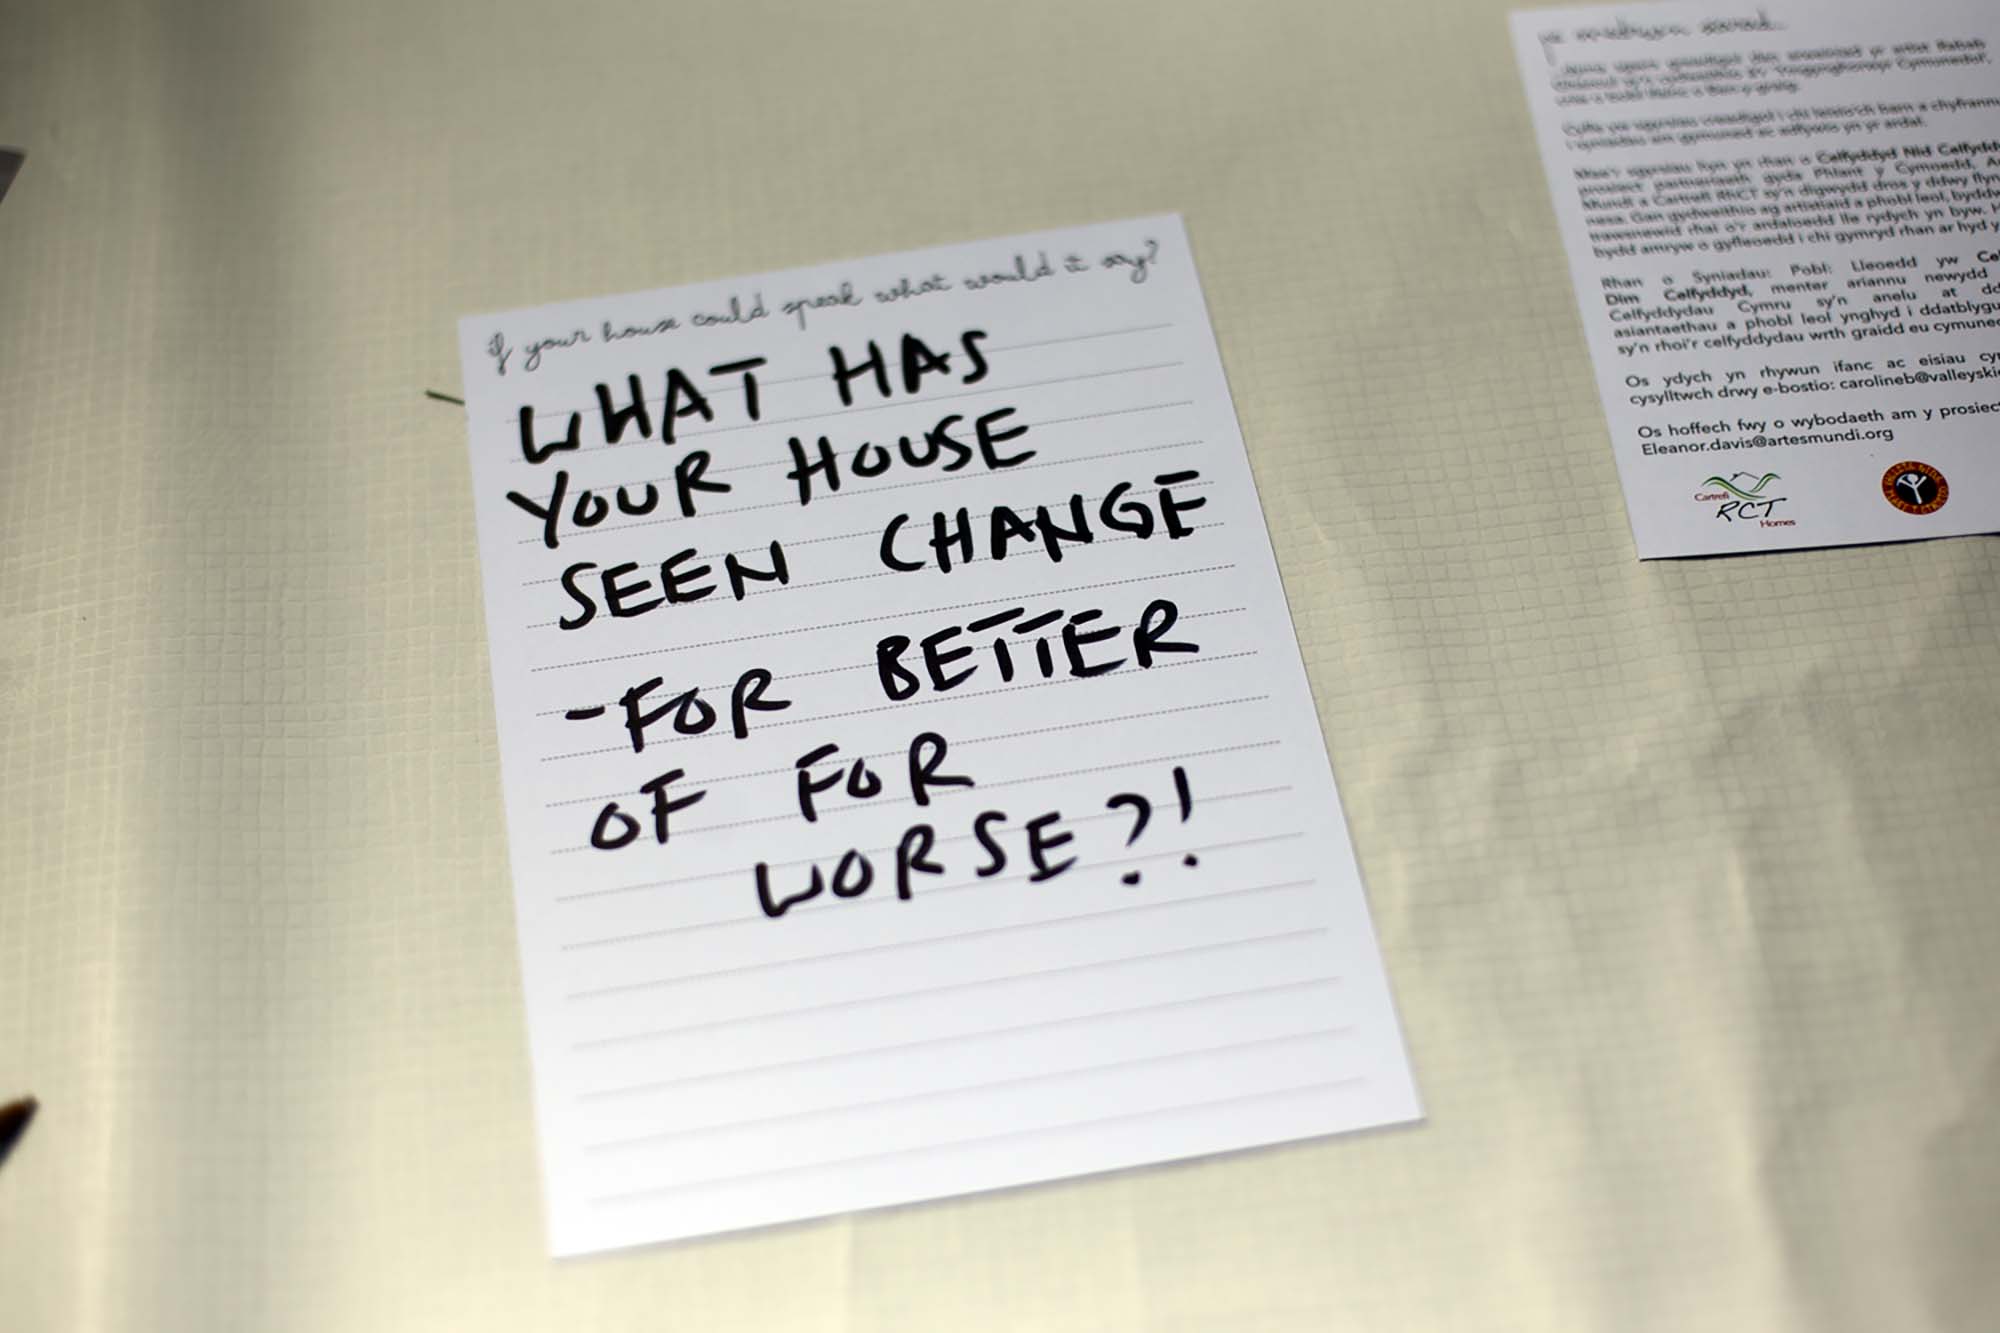 if your house could speak what would it say?
WHAT HAS
YOUR HOUSE
SEEN CHANGE
-FOR BETTER
OF FOR
WORSE?!
Cyfle yw sgyrsiau creadigol i chi leisio'ch barn a chyfrannu
i syniadau am gymuned ac adfywio yn yr ardal.
Mae'r sgyrsiau hyn yn rhan o Celfyddyd Nid Celfydd
prosiect partneriaeth gyda Phlant y Cymoedd, A
Mundi a Cartrefi RhCT sy'n digwydd dros y ddwy flyn
nesa. Gan gydweithio ag artistiaid a phobl leol, byddw
trawsnewid rhai o'r ardaloedd lle rydych yn byw. H
bydd amryw o gyfleoedd i chi gymryd rhan ar hyd y
Rhan o Syniadau: Pobl: Lleoedd yw Cel
Dim Celfyddyd, menter ariannu newydd
Celfyddydau Cymru sy'n anelu at dd
asiantaethau a phobl leol ynghyd i ddatblygu
sy'n rhoi'r celfyddydau wrth graidd eu cymuned
Os ydych yn rhywun ifanc ac eisiau cy
cysylltwch drwy e-bostio: carolineb@valleyski
Os hoffech fwy o wybodaeth am y prosiect
Eleanor.davis@artesmundi.org
Cartrefi
RCT
Homes